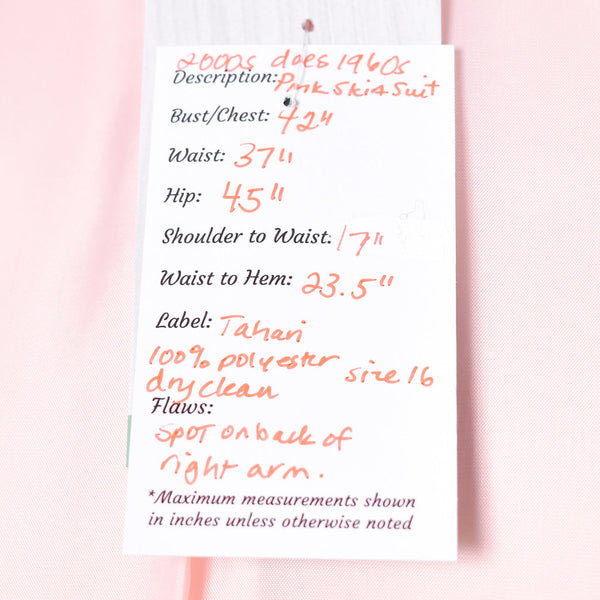 2000s does 1960s
Description: Pink Skirt Suit
Bust/Chest: 42"
Waist: 37"
Hip: 45"
Shoulder to Waist: 17"
Waist to Hem: 23.5"
Label: Tahari
100% polyester size 16
dry clean
Flaws:
SPOT on back of
right arm.
*Maximum measurements shown
in inches unless otherwise noted